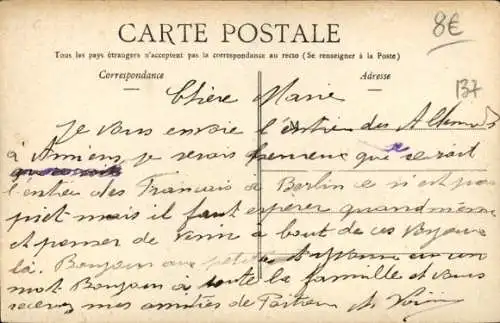 CARTE POSTALE
8€
Tous les pays étrangers n'acceptent pas la correspondance au recto (Se renseigner à la Poste)
Correspondance Adresse
137
Chère Marie
Je vous envoie l'entrée des Allemands
à Amiens je serais heureux que se serait
l'entrée des Francais à Berlin ce n'est pas
mais il faut esperer quand même
et penser de venir a bout de ces
là. Bonjour aux petites et
mot Bonjour à toute la famille et vous
recevez mes amitiés de